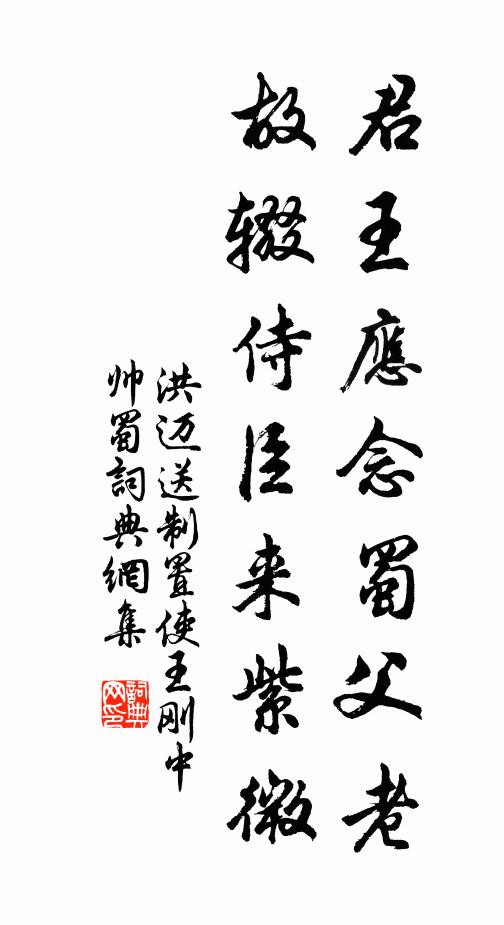 君王應念蜀父老
故辍侍臣来紫微
洪迈送制置使王刚中
帅蜀詞典網集
詞典
网印